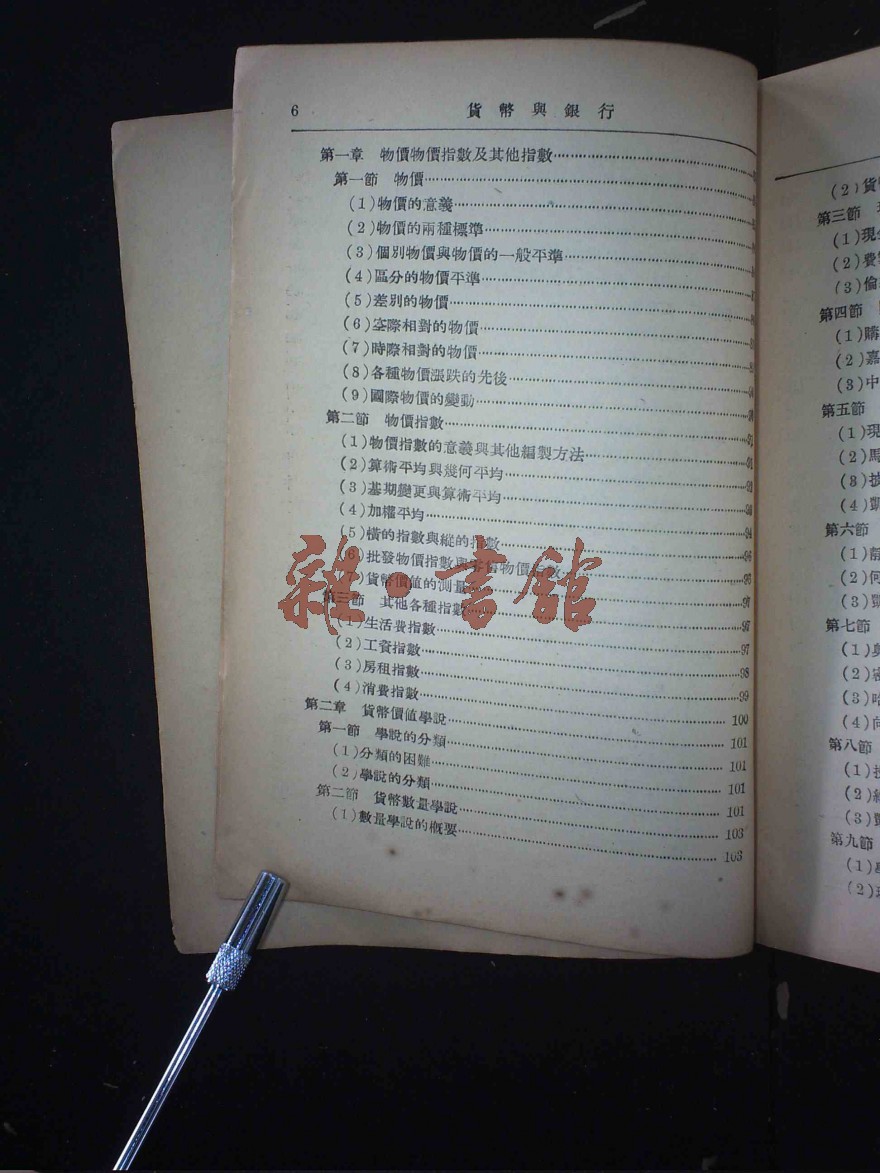 6 貨幣與銀行
第一章 物價物價指數及其他指數
第一節 物價
(1)物價的意義
(2)物價的兩種標準
(3)個別物價與物價的一般平準
(4)區分的物價平準
(5)差別的物價
(6)空際相對的物價
(7)時際相對的物價
(8)各種物價漲跌的先後
(9)國際物價的變動
第二節 物價指數
(1)物價指數的意義與其他編製方法
(2)算術平均與幾何平均
(3)基期變更與算術平均
(4)加權平均 94
(5)橫的指數與縱的指數
(6)批發物價指數與零售物價指數
(7)貨幣價值的測量 97
第三節 其他各種指數 97
(1)生活費指數 97
(2)工資指數 98
(3)房租指數 99
(4)消費指數 100
第二章 貨幣價值學說 101
第一節 學說的分類 101
(1)分類的困難 101
(2)學說的分類 101
第二節 貨幣數量學說 103
(1)數量學說的概要 103
雜·書館
(2)貨
第三節
(1)現
(2)費
(3)
第四節
(1)購
(2)嘉
(3)中
第五節
(1)現
(2)馬
(3)披
(4)凱
第六節
(1)
(2)何
(3)凱
第七節
(1)奧
(2)
(3)哈
(4)向
第八節
(1)
(2)
(3)
第九節
(1)
(2)